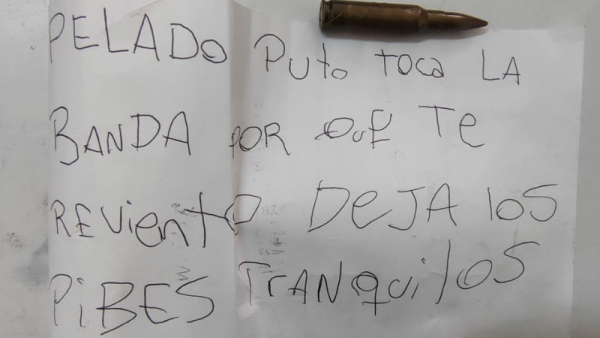 PELADO PUto TOCa LA
BANDA POR QUE TE
REVientO DEJA lOS
PiBES TRANqui lOS